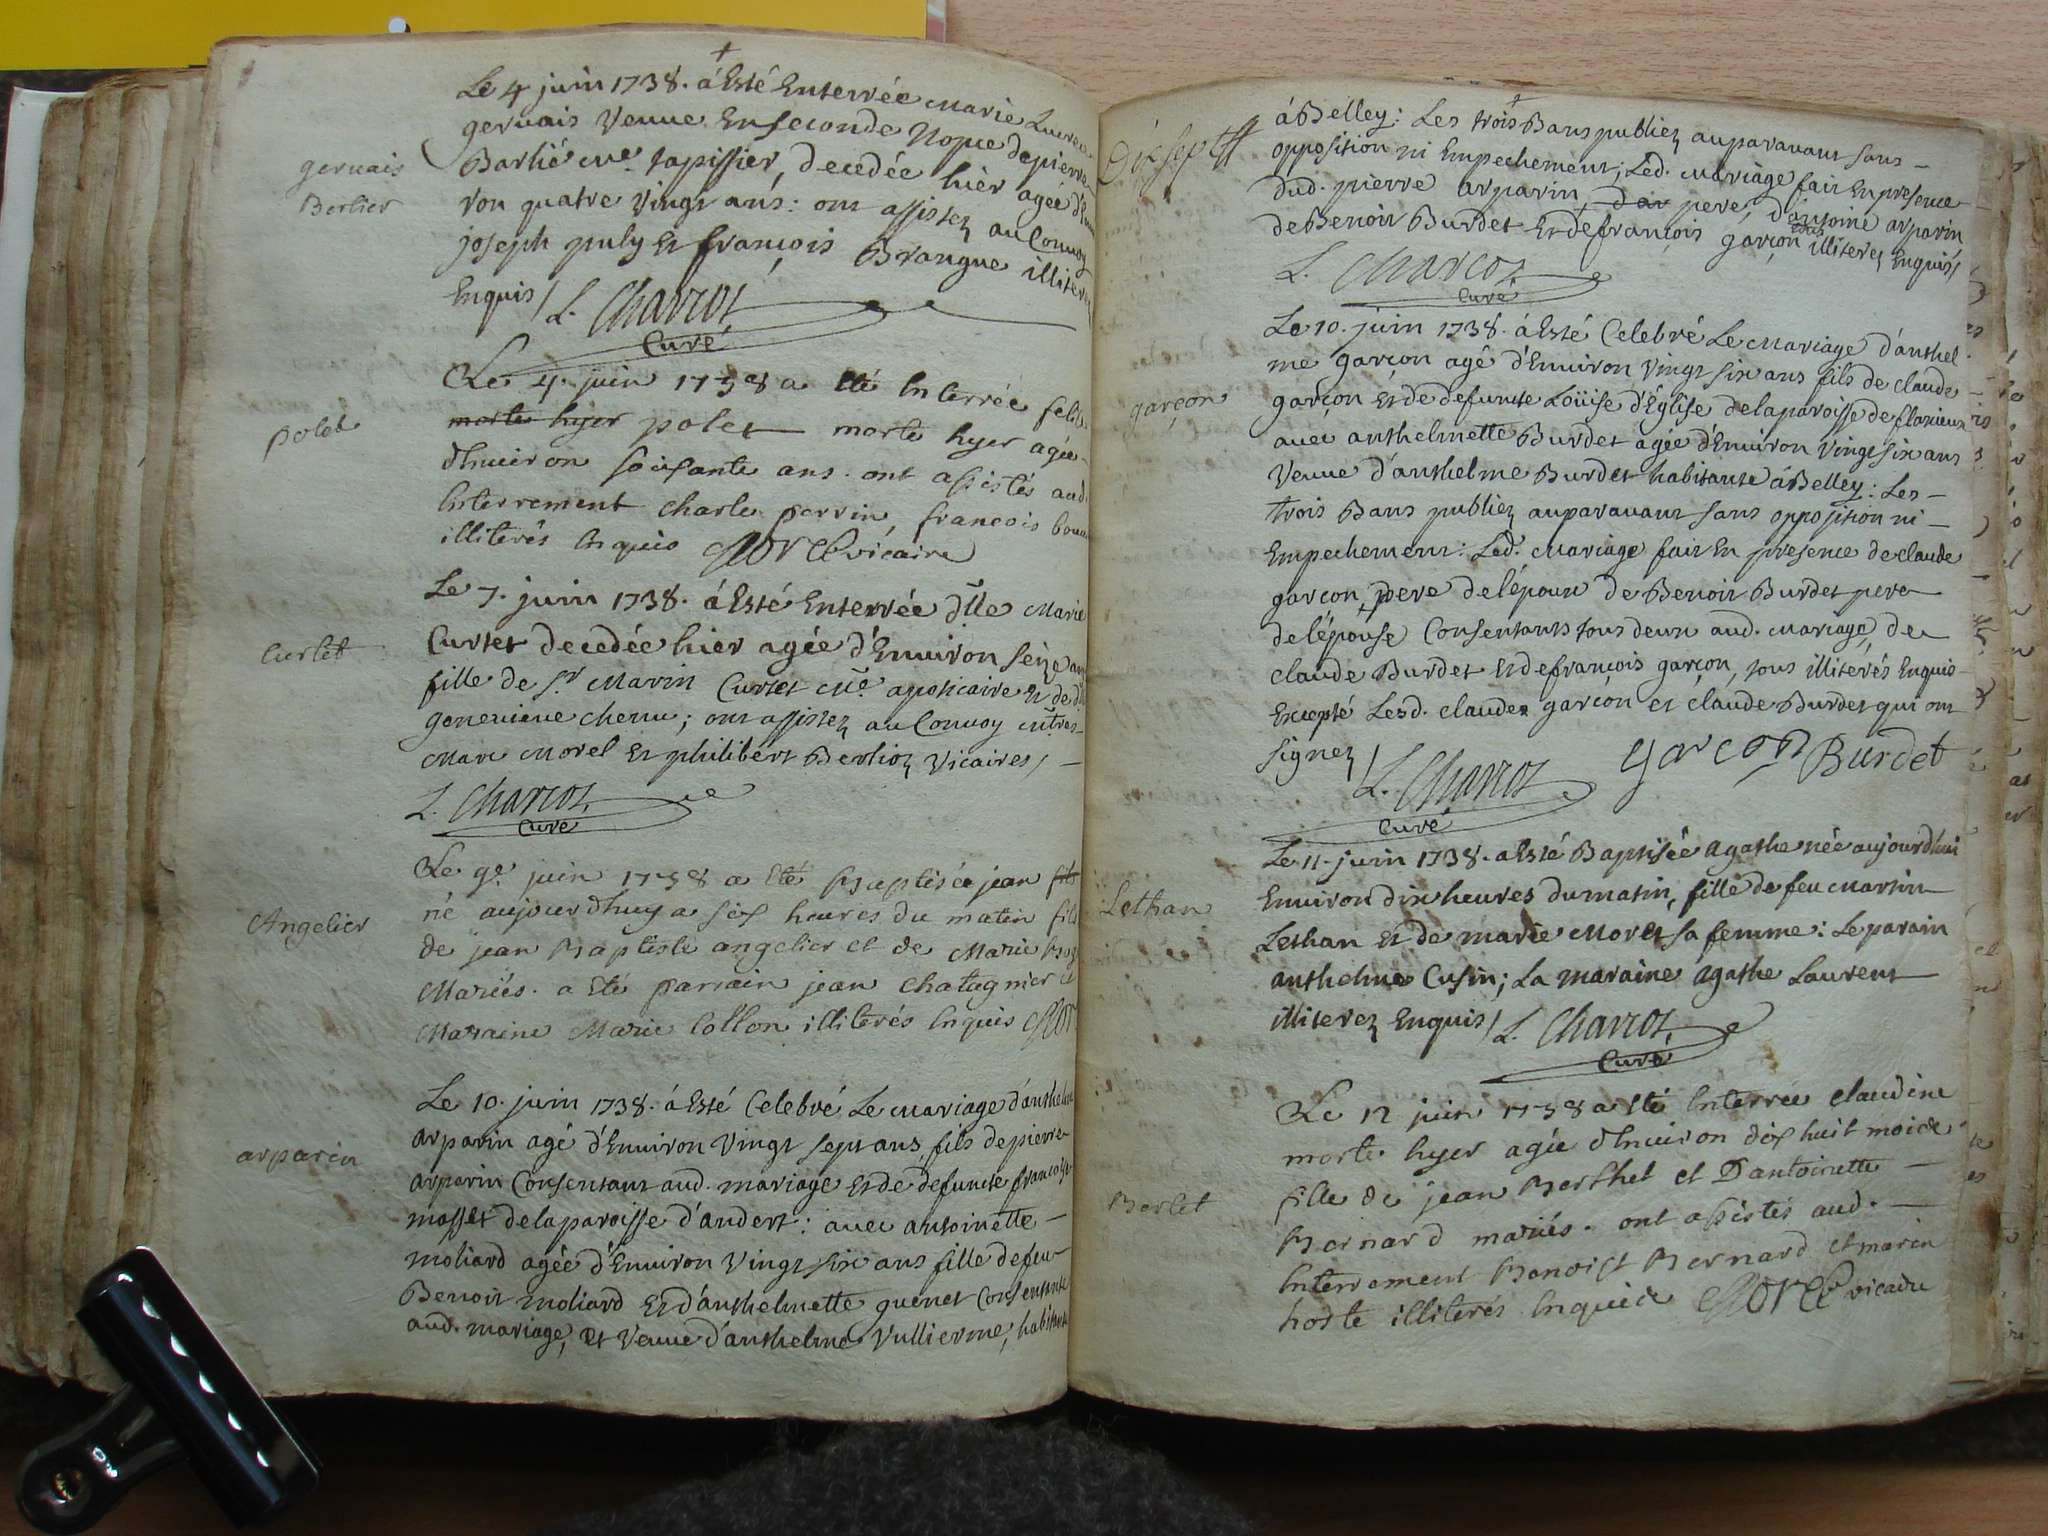 Le 4 juin 1738. á Esté Enterrée Marie
gervais Veuve En seconde Nopce de pierre
gervais
Berlier
Barlié me. tapissier, decedée hier agée
ron quatre Vingt ans: ont assistez au Convoy
joseph puly Et françois Brangue illiterez
Enquis / L. Charcot
Curé
Le 4. juin 1738 a été Enterrée
polet
morte hyer polet morte hyer agée
d'Environ soixante ans. ont assistés aud.
Enterrement charle perrin, francois
illiterés Enquis Morel vicaire
Le 7. juin 1738. á Esté Enterrée dlle Marie
Curtet
Curtet decedée hier agée d'Environ seize ans
fille de sr Marin Curtet me. apoticaire Et de dlle
genevieve chenu; ont assistez au Convoy mtres
Marc Morel Et philibert Berlioz Vicaires /
L. Charcot
Curé
Le 9e. juin 1738 a été Baptisée jean fils
Angelier
né aujourdhuy a six heures du matin fils
de jean Baptiste angelier et de Marie
Mariés. a été parrain jean chatagnier et
Maraine Marie Collon illiterés Enquis Mor
Le 10. juin 1738. á Esté Celebré Le Mariage d'anthelme
arparin
arparin agé d'Environ Vingt sept ans, fils de pierre
arparin Consentant aud. mariage Et de defuncte francoise
masset de la paroisse d'andert: avec antoinette
moliard agée d'Environ Vingt six ans fille de feu
Benoit moliard Et d'anthelmette guenet Consentante
aud. mariage, Et Veuve d'anthelme Vullierme, habitante
á Belley: Les trois Bans publiez auparavant sans
Dix sept
opposition ni Empechement; Led. Mariage fait En presence
dud. pierre arparin, pere, d'antoine arparin
de Benoit Burdet Et de francois garçon tous illiterez Enquis /
L. Charcot
Curé
Le 10. juin 1738. á Esté Celebré Le Mariage d'anthel
me garçon agé d'Environ Vingt six ans fils de claude
garçon
garçon Et de defuncte Loüise d'Eglise de la paroisse de flaxieux
avec anthelmette Burdet agée d'Environ Vingt six ans
Veuve d'anthelme Burdet habitante á Belley: Les
trois Bans publiez auparavant sans opposition ni
Empechement: Led. Mariage fait En presence de claude
garçon, pere de l'époux de Benoit Burdet pere
de l'épouse Consentants tous deux aud. Mariage, de
claude Burdet Et de françois garçon, tous illiterés Enquis
Excepté Lesd. claude garçon et claude Burdet qui ont
signez / L. Charcot garcon Burdet
Curé
Le 11. juin 1738. a Esté Baptisée agathe née aujourd'hui
Lethan
Environ dix heures du matin, fille de feu Martin
Lethan Et de marie Moret sa femme: Le parain
anthelme Cusin; La maraine agathe Laurent
illiterez Enquis / L. Charcot
Curé
Le 12 juin 1738 a été Enterrée claudine
morte hyer agée d'Environ dix huit moide
Bertet
fille de jean Berthet et D'antoinette
Bernard mariés. ont assistés aud.
Enterrement Benoist Bernard et marin
hoste illiterés Enquis Morel vicaire